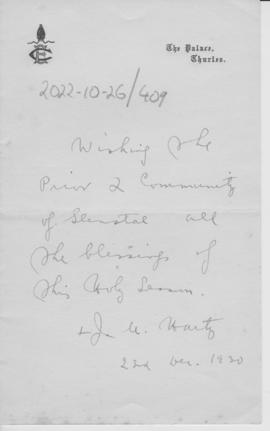 The Palace,
Thurles.
2022-10-26/409
Wishing the
Prior & Community
of Glenstal all
the blessings of
this Holy Season.
+ Jn M. Harty
22d Dec. 1930